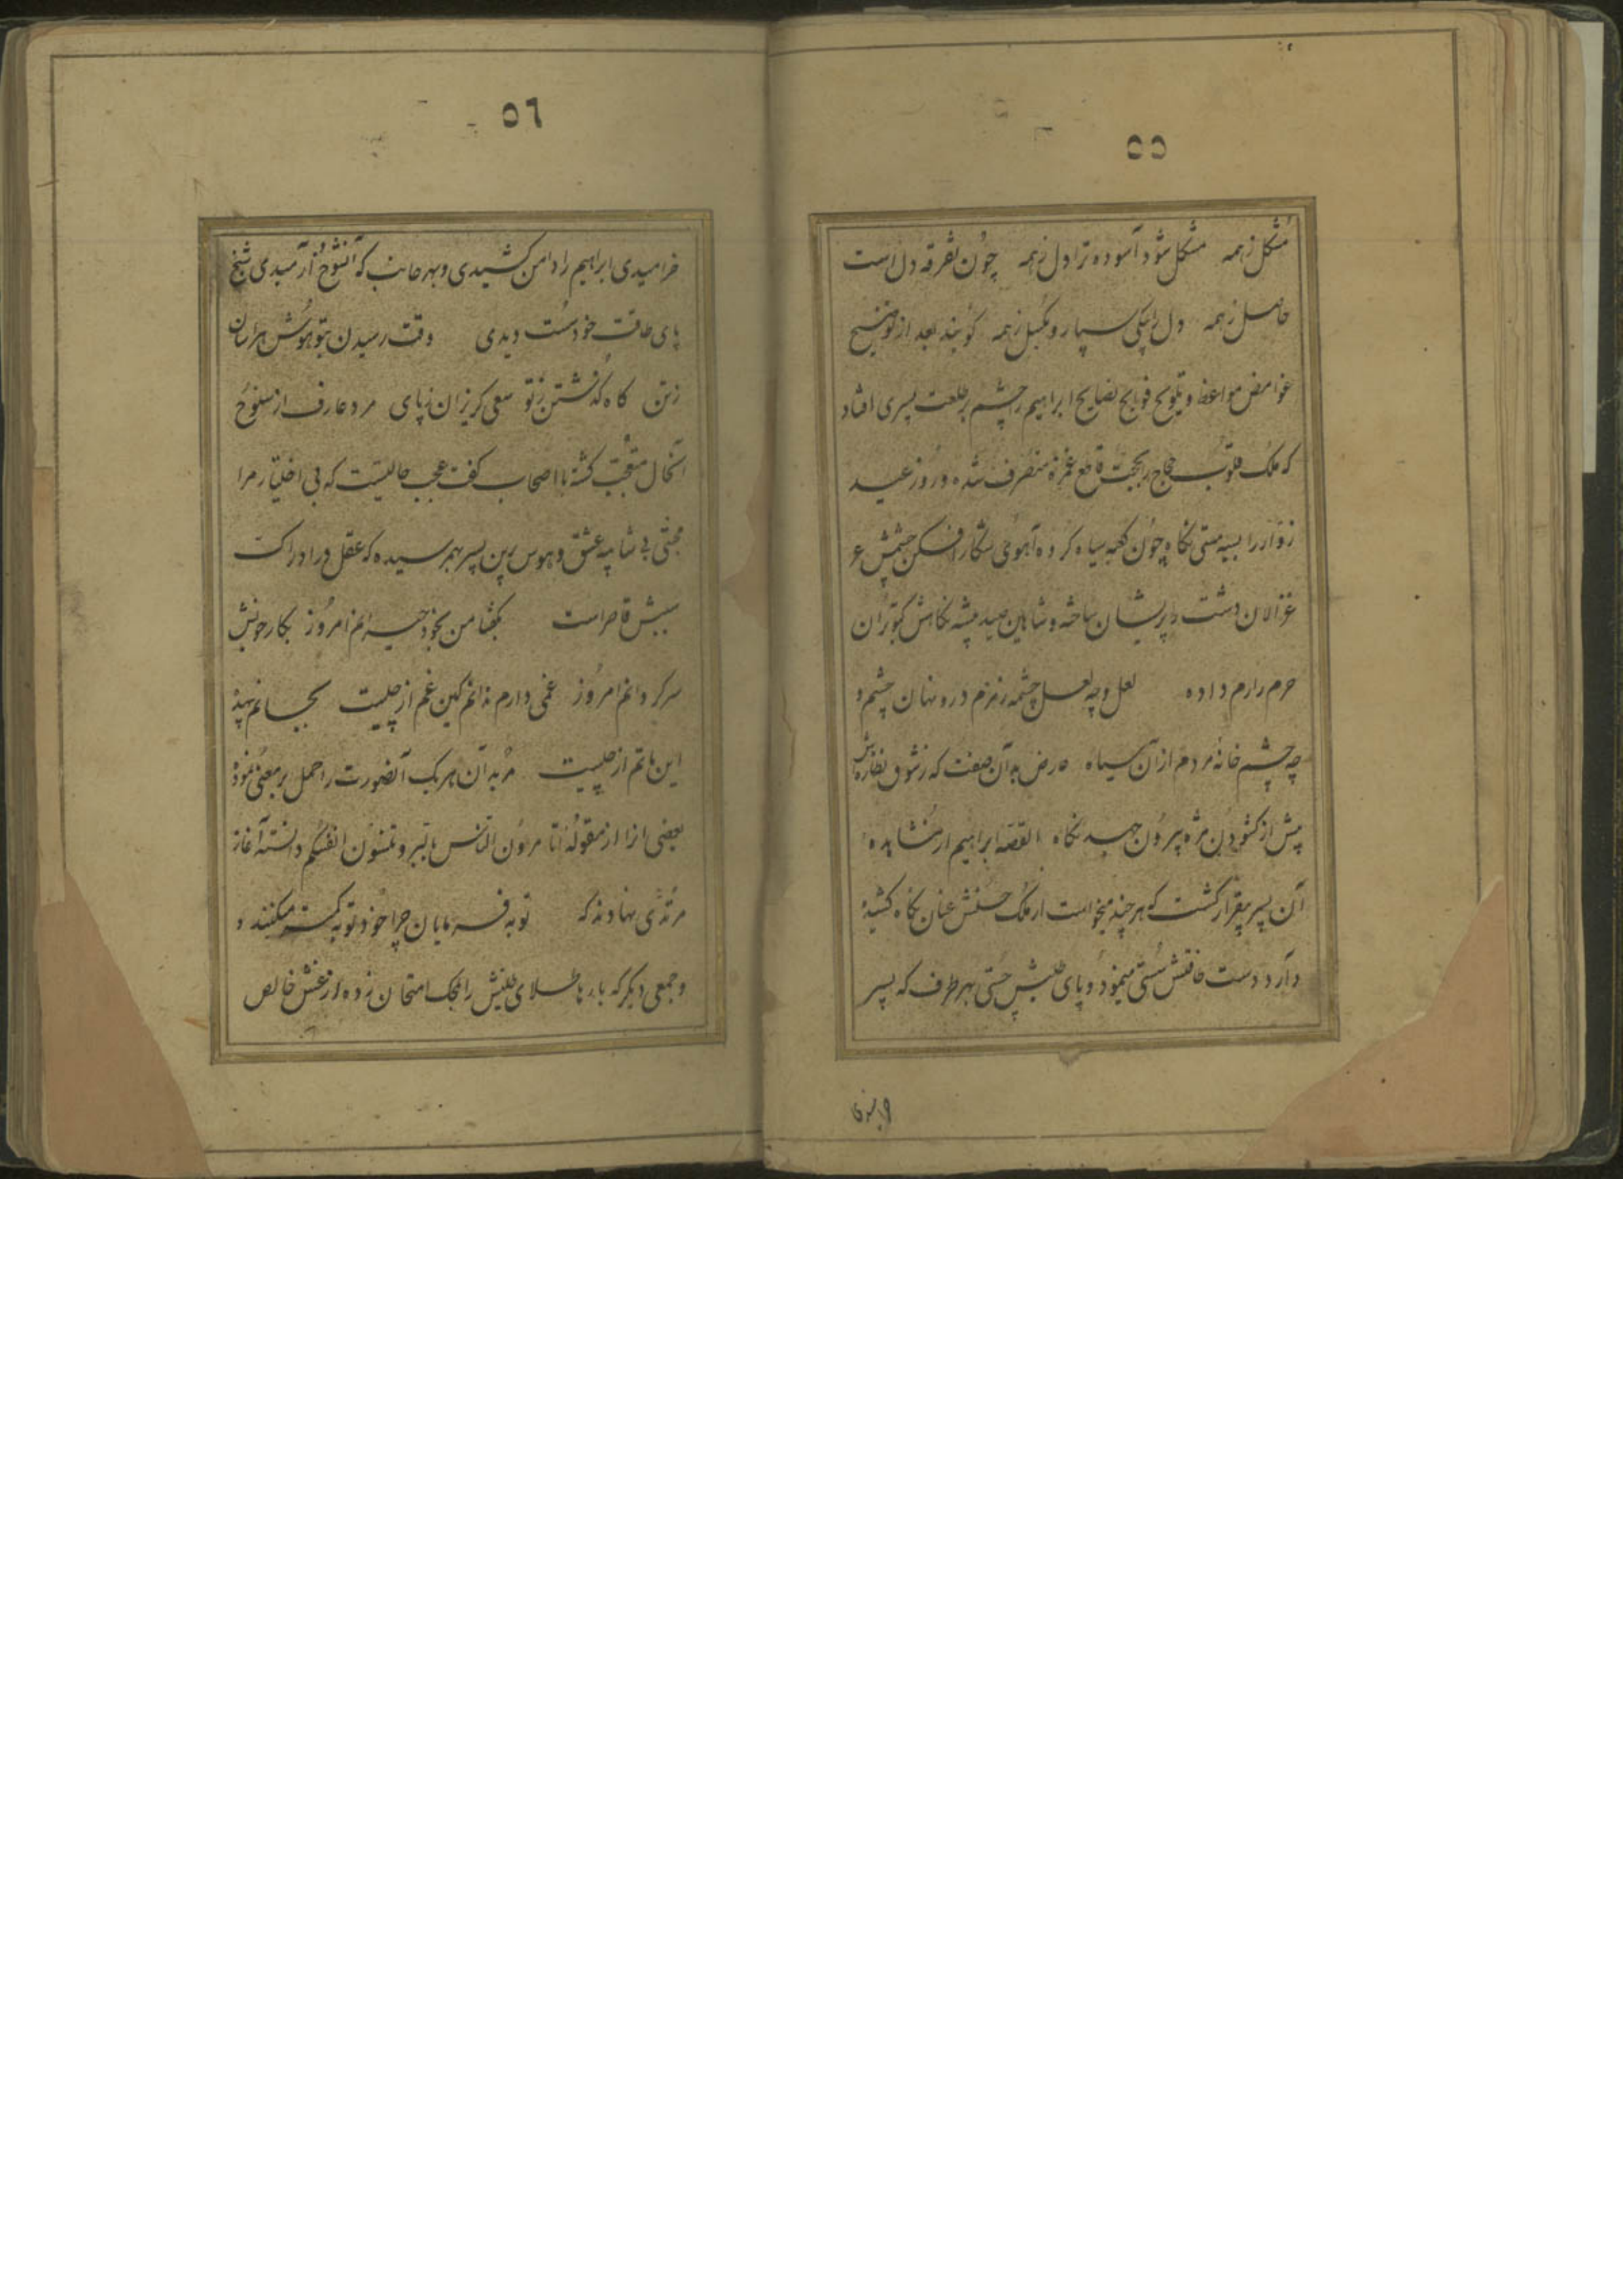 ٥٥
مشکل ز همه مشکل شود آسوده ترا دل ز همه چون تفرقه دل است
حاصل ز همه دل را بیکی سپار و بگسل ز همه گویند بعد از توضیح
غوامض مواعظ و تلویح فوایح نصایح ابراهیم را چشم بر طلعت پسری افتاد
که ملک قلوب حجاج بحجت قاطع غمزه متصرف شده و روز عید
زوار را بسیه مستی نگاه چون کعبه سیاه کرده آهوی شکار افکن چشمش
غزالان دشت را پریشان ساخته و شاهین صید پیشه نگاهش کبوتران
حرم را رم داده لعل و چه لعل چشمه زمزم درو نهان چشم و
چه چشم خانه مردم از آن سیاه عارض به آن صفت که ز شوق نظاره اش
پیش از گشودن مژه بیرون جهد نگاه القصه ابراهیم از مشاهده
آن پسر بیقرار گشت که هر چند میخواست از ملک حسنش عنان نگاه کشیده
دارد دست طاقتش سستی مینمود و پای طلبش چستی بهر طرف که پسر
٥٦
خرامیدی ابراهیم را دامن کشیدی و بهر جانب که آنشوخ آرمیدی شیخ
پای طاقت خود سست دیدی وقت رسیدن بتو هوش هراسان
ز تن گاه گذشتن ز تو سعی گریزان ز پای مرد عارف از سنوح
آنحال متعجب گشته با اصحاب گفت عجب حالیست که بی اختیار مرا
محبتی بی شایبه عشق و هوس باین پسر بهم رسیده که عقل در ادراک
سببش قاصر است بگفتا من بخود حیرانم امروز بکار خویش
سرگردانم امروز غمی دارم ندانم کین غم از چیست بجانم
این ماتم از چیست مریدان هر یک آنصورت را حمل بر معنی نموده
بعضی آنرا از مقوله اتامرون الناس بالبر و تنسون انفسکم دانسته آغاز
مرتدی نهادند که توبه فرمایان چرا خود توبه کمتر میکنند و
و جمعی دیگر که بارها طلای طلبش را بمحک امتحان زده از غش خالص